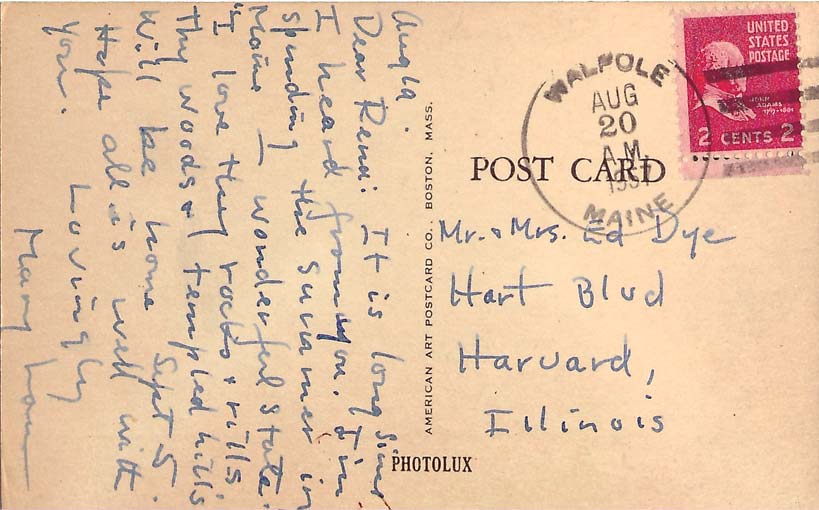 Aug 19.
Dear Rena: It is long since
I heard from you. I'm
spending the summer in
Maine — wonderful state.
"I love thy rocks & rills
Thy woods & templed hills
Will be home Sept 5.
Hope all is well with
you.
Lovingly
Mary Lou
AMERICAN ART POSTCARD CO., BOSTON, MASS.
WALPOLE
AUG
20
A.M.
MAINE
UNITED
STATES
POSTAGE
JOHN
ADAMS
1797-1801
2 CENTS 2
POST CARD
Mr. & Mrs. Ed Dye
Hart Blvd
Harvard,
Illinois
PHOTOLUX